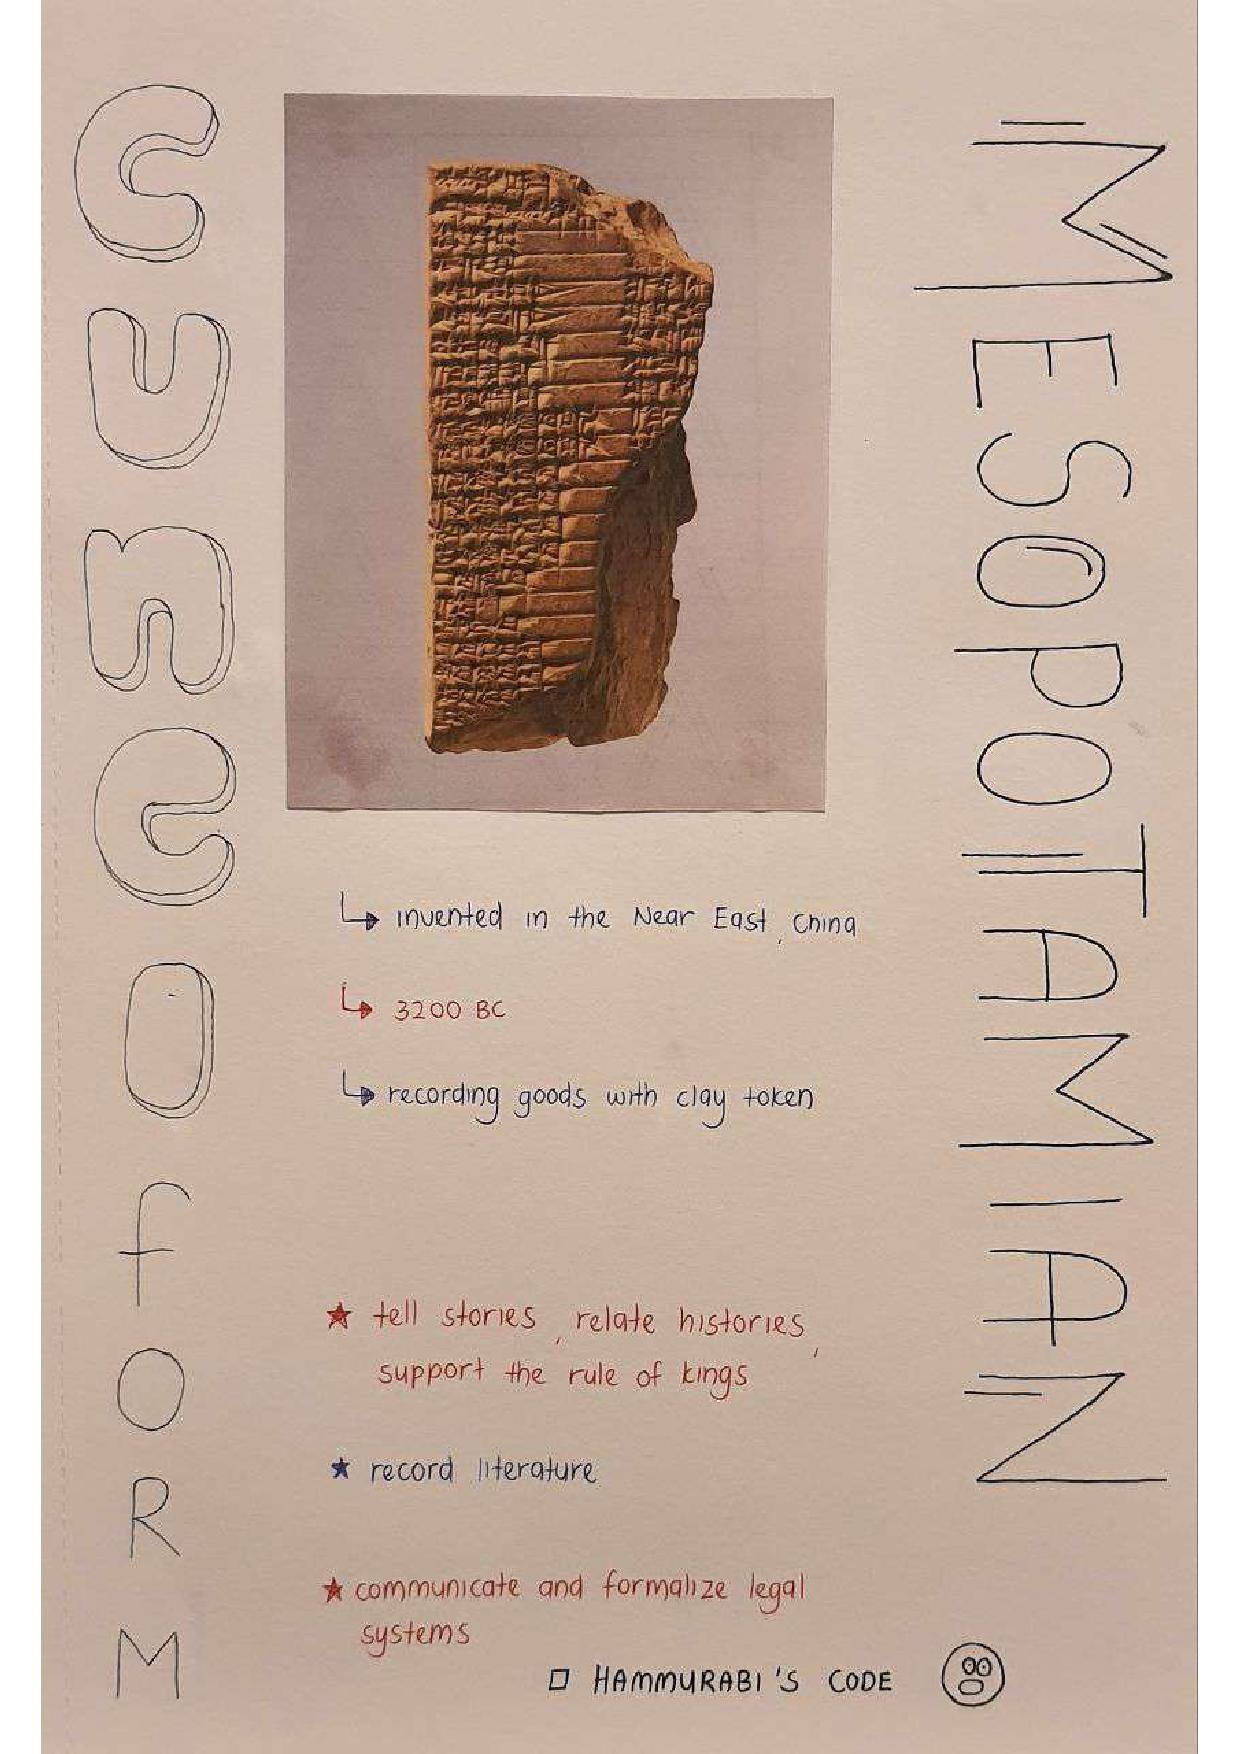 CuneOfORM
MESOPOTAMIAN
invented in the Near East, China
3200 BC
recording goods with clay token
★ tell stories, relate histories,
support the rule of kings
★ record literature
★ communicate and formalize legal
systems
HAMMURABI'S CODE